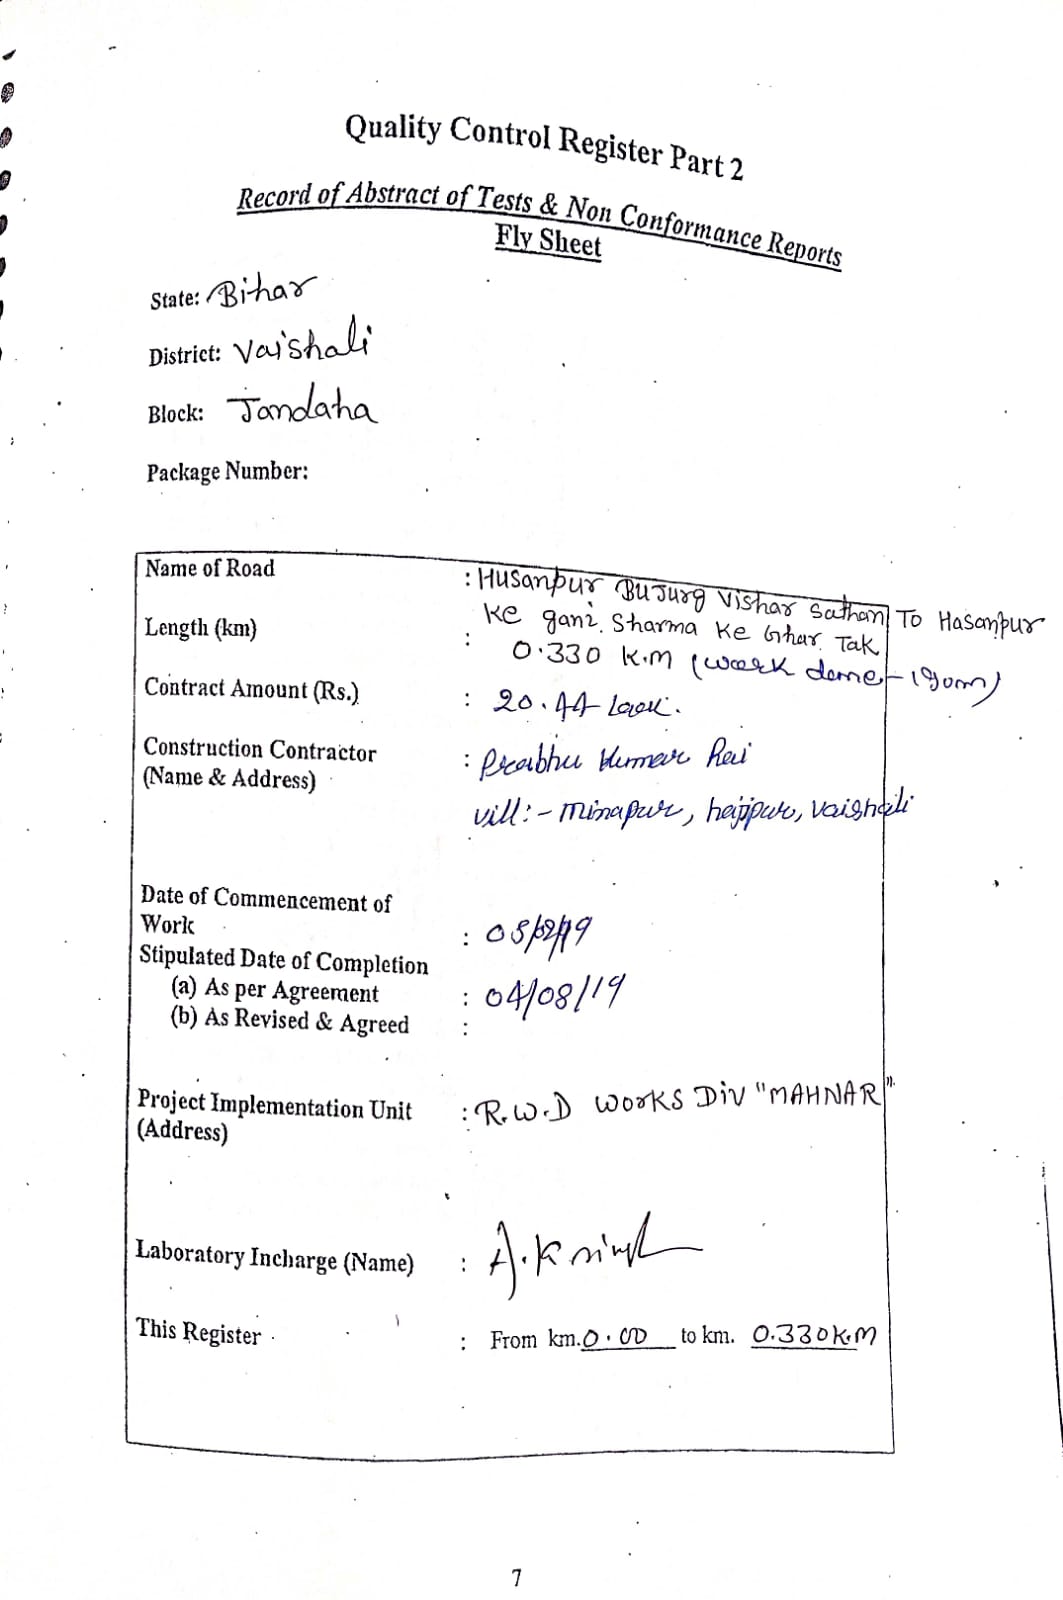 Quality Control Register Part 2
Record of Abstract of Tests & Non Conformance Reports
Fly Sheet
State: Bihar
District: Vaishali
Block: Jandaha
Package Number:
Name of Road : Husanpur BUJurg Vishar Sathan To Hasanpur
ke gani. Sharma ke Ghar Tak
Length (km) : 0.330 K.M (work done - 190m)
Contract Amount (Rs.) : 20.44 Lack.
Construction Contractor : Prabhu Kumar Rai
(Name & Address)
vill:- minapur, hajipur, vaishali
Date of Commencement of
Work : 05/02/19
Stipulated Date of Completion
(a) As per Agreement : 04/08/19
(b) As Revised & Agreed :
Project Implementation Unit : R.W.D WORKS DIV "MAHNAR"
(Address)
Laboratory Incharge (Name) : A.K singh
This Register : From km. 0.00 to km. 0.330K.M
7